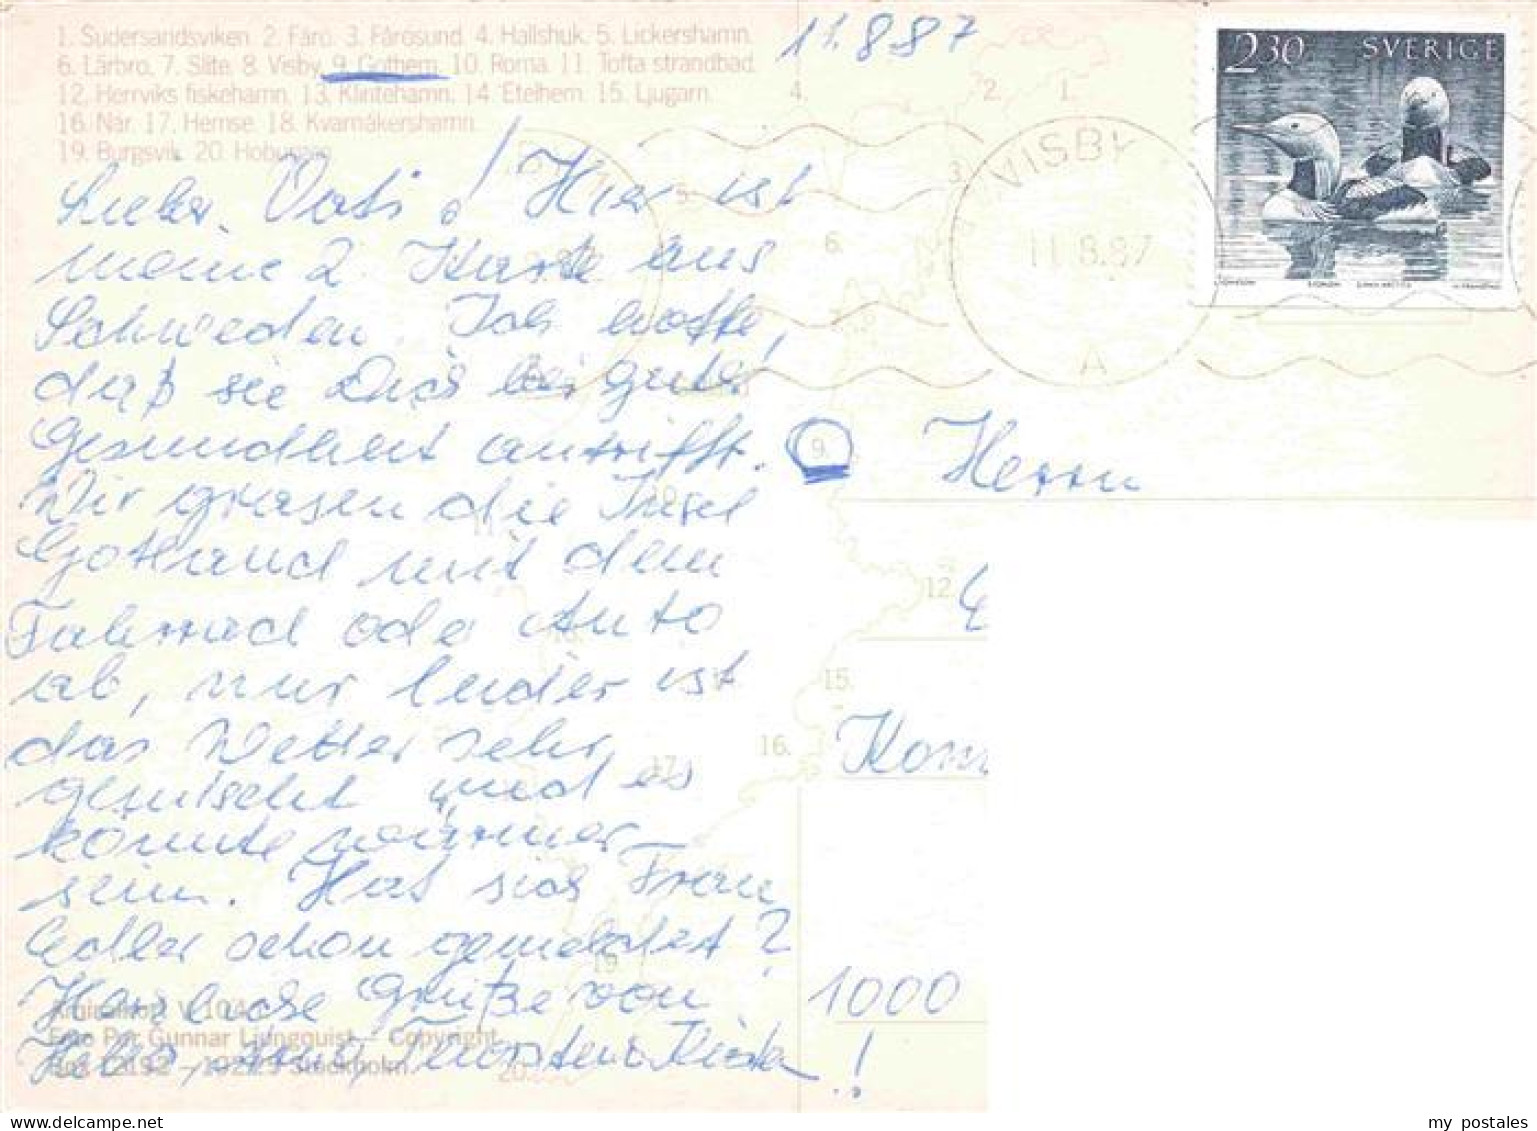 11.8.87
1. Sudersandsviken. 2. Fårö. 3. Fårösund. 4. Hallshuk. 5. Lickershamn.
6. Lärbro. 7. Slite. 8. Visby. 9. Gothem. 10. Roma. 11. Tofta strandbad.
12. Herrviks fiskehamn. 13. Klintehamn. 14. Etelhem. 15. Ljugarn.
16. När. 17. Hemse. 18. Kvarnåkershamn.
19. Burgsvik. 20. Hoburgen.
2.30 SVERIGE
VISBY
11.8.87
A
Lieber Vati! Hier ist
meine 2. Karte aus
Schweden. Ich hoffe,
daß sie Dich bei guter
Gesundheit antrifft.
Wir grasen die Insel
Gotland mit dem
Fahrrad oder Auto
ab, nur leider ist
das Wetter sehr
gemischt und es
könnte wärmer
sein. Hat sich Frau
schon gemeldet?
Herzliche Grüße von
Thorsten
!
Herrn
1000
1.
2.
3.
4.
5.
6.
9.
10.
12.
15.
16.
17.
19.
20.
Foto Per Gunnar Ljungqvist – Copyright
Stockholm
my postales